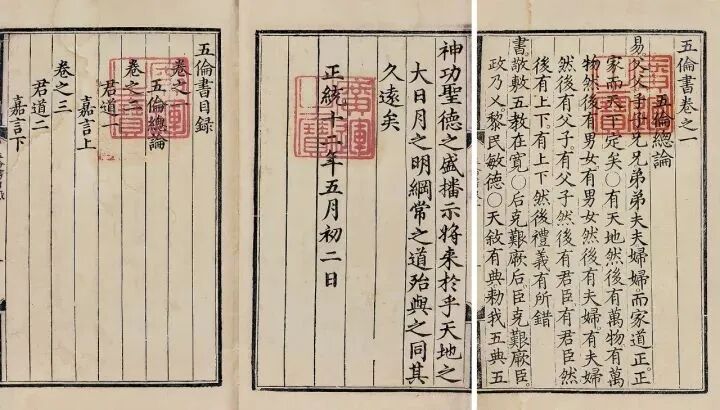 五倫書卷之一
五倫總論
易。父父子子兄兄弟弟夫夫婦婦。而家道正。正
家而天下定矣。○有天地然後有萬物。有萬
物然後有男女。有男女然後有夫婦。有夫婦
然後有父子。有父子然後有君臣。有君臣然
後有上下。有上下然後禮義有所錯
書敬敷五教在寬○后克艱厥后臣克艱厥臣
政乃乂黎民敏德○天敘有典勅我五典五
神功聖德之盛播示將來於乎天地之
大日月之明綱常之道殆與之同其
久遠矣
正統十二年五月初二日
廣運之寶
五倫書目録
卷之一
五倫總論
卷之二
君道一
嘉言上
卷之三
君道二
嘉言下